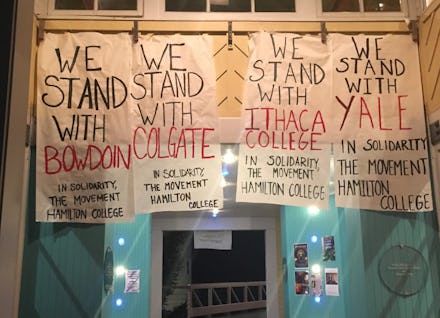 WE
STAND
WITH
BOWDOIN
IN SOLIDARITY,
THE MOVEMENT
HAMILTON COLLEGE
WE
STAND
WITH
COLGATE
IN SOLIDARITY,
THE MOVEMENT
HAMILTON
COLLEGE
WE
STAND
WITH
ITHACA
COLLEGE
IN SOLIDARITY,
THE MOVEMENT
HAMILTON COLLEGE
WE
STAND
WITH
YALE
IN SOLIDARITY,
THE MOVEMENT
HAMILTON
COLLEGE